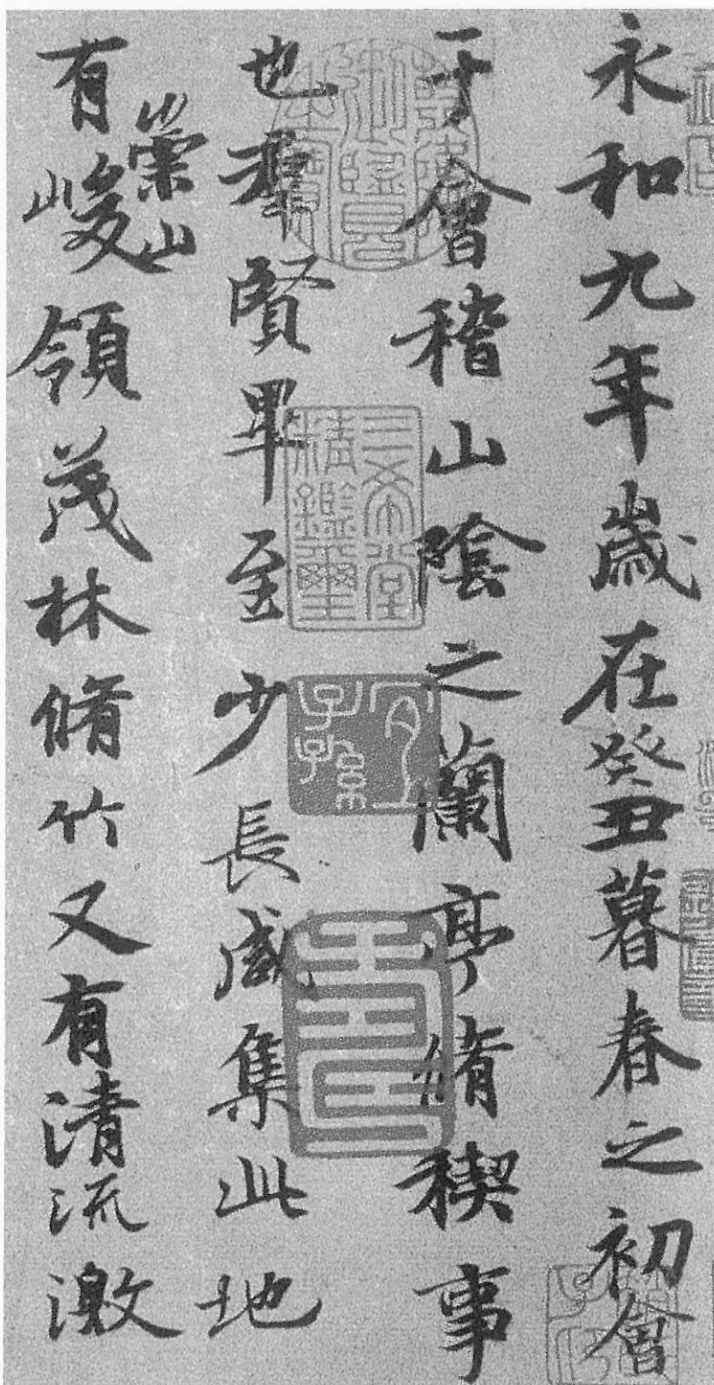 永和九年歲在癸丑暮春之初會
于會稽山陰之蘭亭脩稧事
也羣賢畢至少長咸集此地
有崇山峻領茂林脩竹又有清流激
三希堂精鑑璽
宜子孫